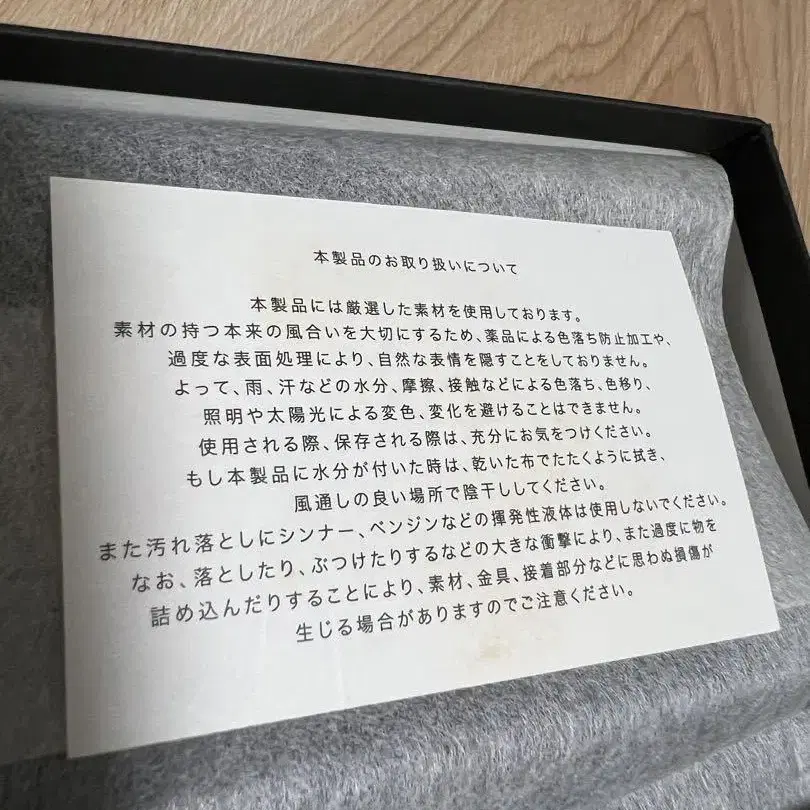 本製品のお取り扱いについて
本製品には厳選した素材を使用しております。
素材の持つ本来の風合いを大切にするため、薬品による色落ち防止加工や、
過度な表面処理により、自然な表情を隠すことをしておりません。
よって、雨、汗などの水分、摩擦、接触などによる色落ち、色移り、
照明や太陽光による変色、変化を避けることはできません。
使用される際、保存される際は、充分にお気をつけください。
もし本製品に水分が付いた時は、乾いた布でたたくように拭き、
風通しの良い場所で陰干ししてください。
また汚れ落としにシンナー、ベンジンなどの揮発性液体は使用しないでください。
なお、落としたり、ぶつけたりするなどの大きな衝撃により、また過度に物を
詰め込んだりすることにより、素材、金具、接着部分などに思わぬ損傷が
生じる場合がありますのでご注意ください。